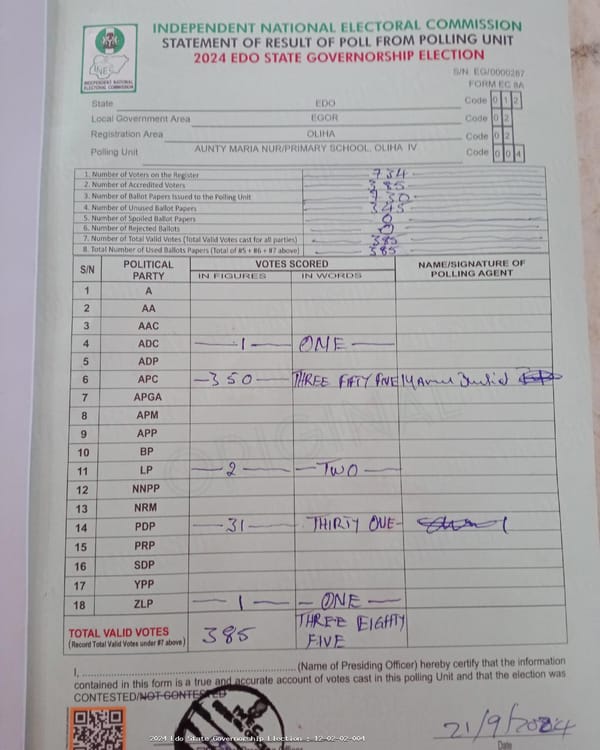 INDEPENDENT NATIONAL ELECTORAL COMMISSION
STATEMENT OF RESULT OF POLL FROM POLLING UNIT
2024 EDO STATE GOVERNORSHIP ELECTION
INEC
INDEPENDENT NATIONAL
ELECTORAL COMMISSION
S/N EG/0000287
FORM EC 8A
State EDO Code 0 1 2
Local Government Area EGOR Code 0 2
Registration Area OLIHA Code 0 2
Polling Unit AUNTY MARIA NUR/PRIMARY SCHOOL, OLIHA IV Code 0 0 4
1. Number of Voters on the Register 734
2. Number of Accredited Voters 385
3. Number of Ballot Papers Issued to the Polling Unit 730
4. Number of Unused Ballot Papers 345
5. Number of Spoiled Ballot Papers 0
6. Number of Rejected Ballots 0
7. Number of Total Valid Votes (Total Valid Votes cast for all parties) 385
8. Total Number of Used Ballots Papers (Total of #5 + #6 + #7 above) 385
S/N POLITICAL PARTY VOTES SCORED NAME/SIGNATURE OF POLLING AGENT
IN FIGURES IN WORDS
1 A
2 AA
3 AAC
4 ADC 1 ONE
5 ADP
6 APC 350 THREE FIFTY FIVE
7 APGA
8 APM
9 APP
10 BP
11 LP 2 TWO
12 NNPP
13 NRM
14 PDP 31 THIRTY ONE
15 PRP
16 SDP
17 YPP
18 ZLP 1 ONE
TOTAL VALID VOTES 385 THREE EIGHTY FIVE
(Record Total Valid Votes under #7 above)
ORIGINAL
I, (Name of Presiding Officer) hereby certify that the information
contained in this form is a true and accurate account of votes cast in this polling Unit and that the election was
CONTESTED/NOT CONTESTED
21/9/2024
Date
2024 Edo State Governorship Election : 12-02-02-004